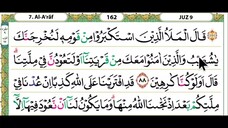 7. Al-A'râf 162 JUZ 9
قَالَ الْمَلَأُ الَّذِينَ اسْتَكْبَرُوا مِنْ قَوْمِهِ لَنُخْرِجَنَّكَ
يٰشُعَيْبُ وَالَّذِينَ اٰمَنُوا مَعَكَ مِنْ قَرْيَتِنَآ اَوْ لَتَعُودُنَّ فِي مِلَّتِنَا
قَالَ اَوَلَوْ كُنَّا كٰرِهِينَ ٨٨ قَدِ افْتَرَيْنَا عَلَى اللّٰهِ كَذِبًا اِنْ عُدْنَا فِي
مِلَّتِكُمْ بَعْدَ اِذْ نَجّٰىنَا اللّٰهُ مِنْهَا وَمَا يَكُونُ لَنَآ اَنْ نَّعُودَ فِيهَآ اِلَّآ